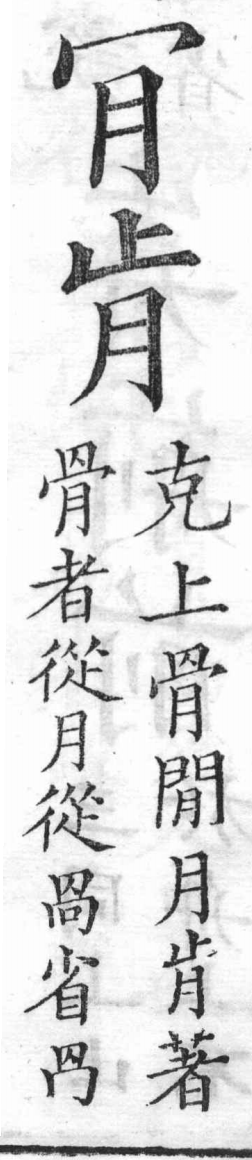 肎肯
克上骨閒月肯著
骨者從月從咼省冎